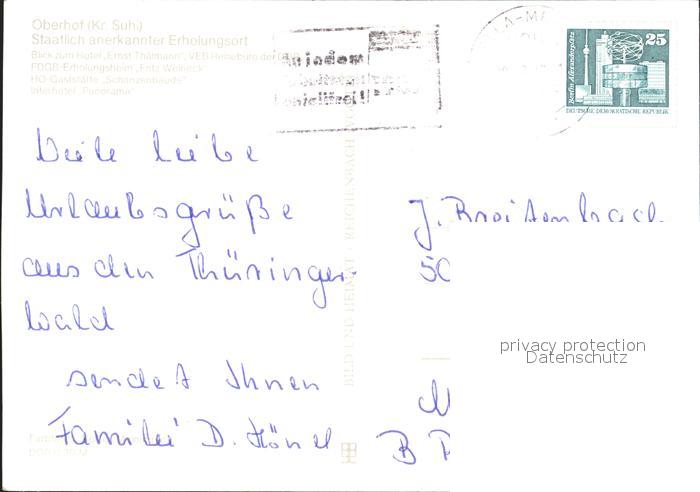 Oberhof (Kr. Suhl)
Staatlich anerkannter Erholungsort
Blick zum Hotel „Ernst Thälmann", VEB Reisebüro der
FDGB-Erholungsheim „Fritz Weineck"
HO-Gaststätte „Schanzenbaude"
Interhotel „Panorama"
in jedem
25
Berlin Alexanderplatz
DEUTSCHE DEMOKRATISCHE REPUBLIK
Viele liebe
Urlaubsgrüße
aus dem Thüringer-
wald
sendet Ihnen
Familie D. Hönel
BILD UND HEIMAT REICHENBACH
J. Breitenbach
50
B
privacy protection
Datenschutz